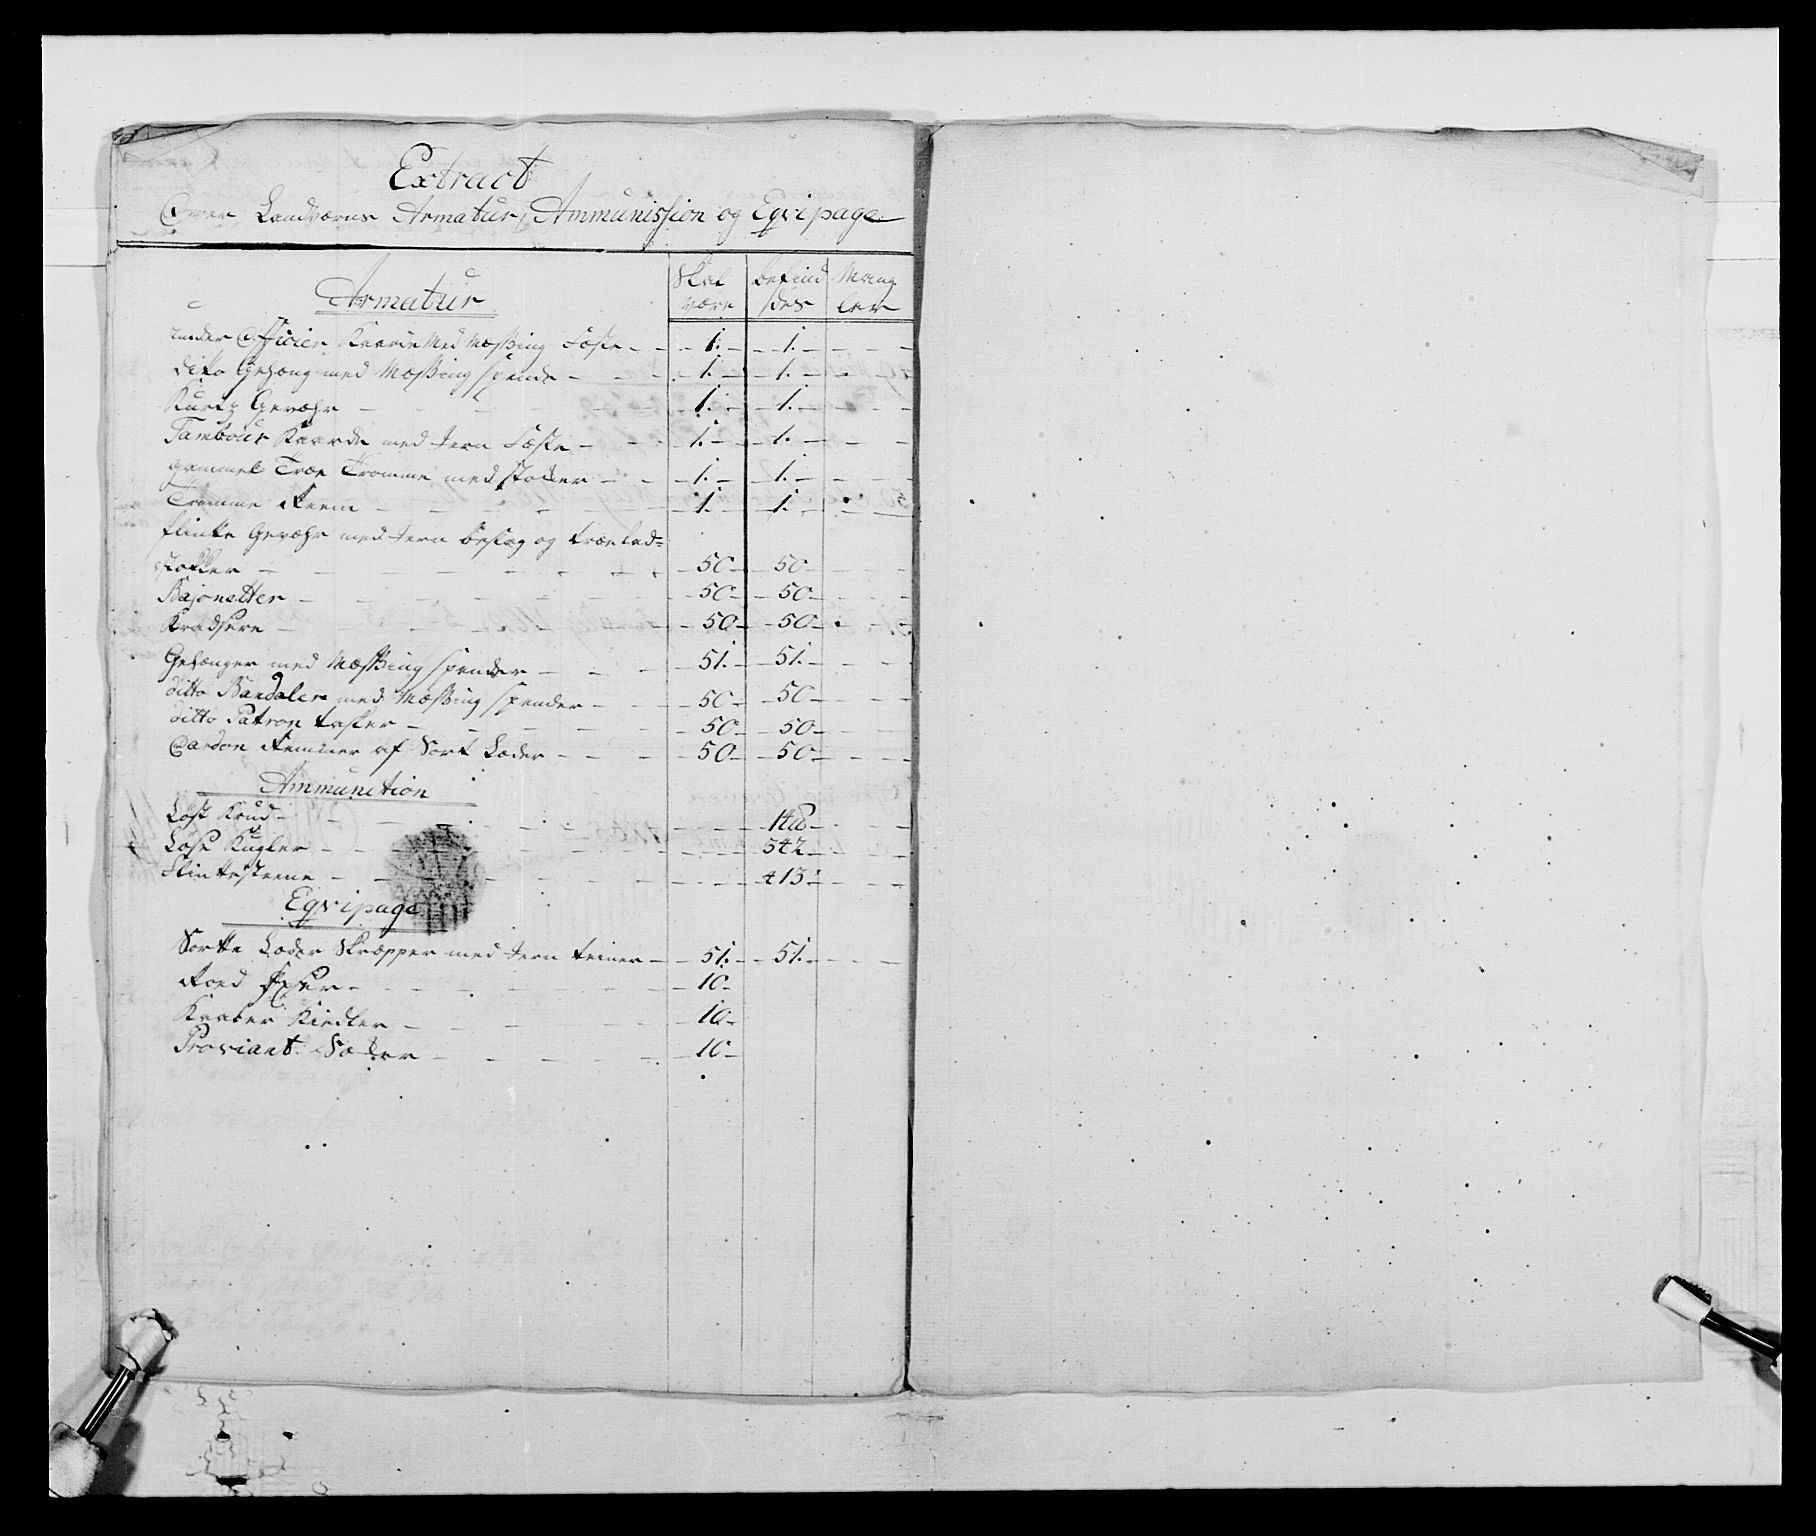 Extract
Over Landværns Armatur, Ammunission og Eqvipage
Skal befind Mang
Armatur være des ler
under Officier Kaarde Med Mæssing Fæste 1. 1.
dito Gehæng med Mæssing spende 1. 1.
Kurtz Gevæhr 1. 1.
Tambour Kaarde med Jern Fæste 1. 1.
gammel Træe Tromme med stokker 1. 1.
Tromme Reem 1. 1.
flinte Gevæhr med Jern beslag og træe lad-
stokker 50 50
Bajonetter 50 50
Kradsere 50 50
Gehænger med Mæssing spender 51. 51.
ditto Bandaler med Mæssing spender 50 50
ditto Patron tasker 50 50
Cardon Remmer af Sort Læder 50 50
Ammunition
Løst Krud
Løse Kugler 542
Flintesteene 413
Eqvipage
Sortte Læder Skræpper med Jern teiner 51. 51.
Roed 10
Kaaber Kiedler 10
Proviant Sækker 10